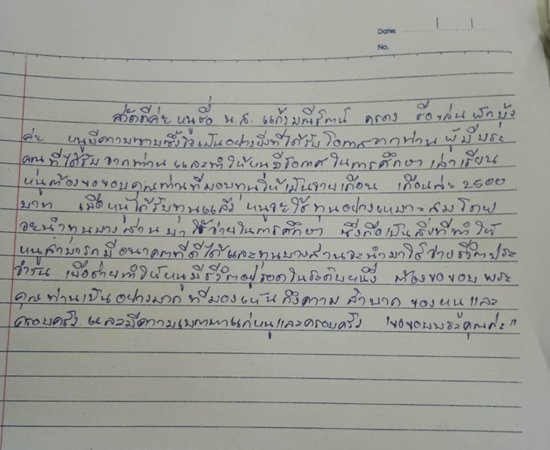 Date:
No.
สวัสดีค่ะ หนูชื่อ น.ส. แก้วมณีรัตน์ ชื่อเล่น ผักบุ้ง
ค่ะ หนูมีความซาบซึ้งใจเป็นอย่างยิ่งที่ได้รับโอกาสจากท่าน ผู้มีพระ
คุณที่ได้รับจากท่าน และทำให้หนูมีโอกาสในการศึกษา เล่าเรียน
หนูต้องขอขอบคุณท่านที่มอบทุนให้เป็นรายเดือน เดือนละ 2500
บาท เมื่อหนูได้รับทุนแล้ว หนูจะใช้ทุนอย่างเหมาะสม โดย
จะนำทุนบางส่วน มาใช้จ่ายในการศึกษา ซึ่งถือเป็นสิ่งที่ทำให้
หนูสามารถมีอนาคตที่ดีได้และทุนบางส่วนจะนำมาใช้จ่ายชีวิตประ
จำวัน เพื่อช่วยทำให้หนูมีชีวิตอยู่รอดในระดับหนึ่ง ต้องขอขอบพระ
คุณท่านเป็นอย่างมาก ที่มองเห็นถึงความลำบาก ของหนูและ
ครอบครัว และมีความเมตตาแก่หนูและครอบครัว "ขอขอบพระคุณค่ะ"